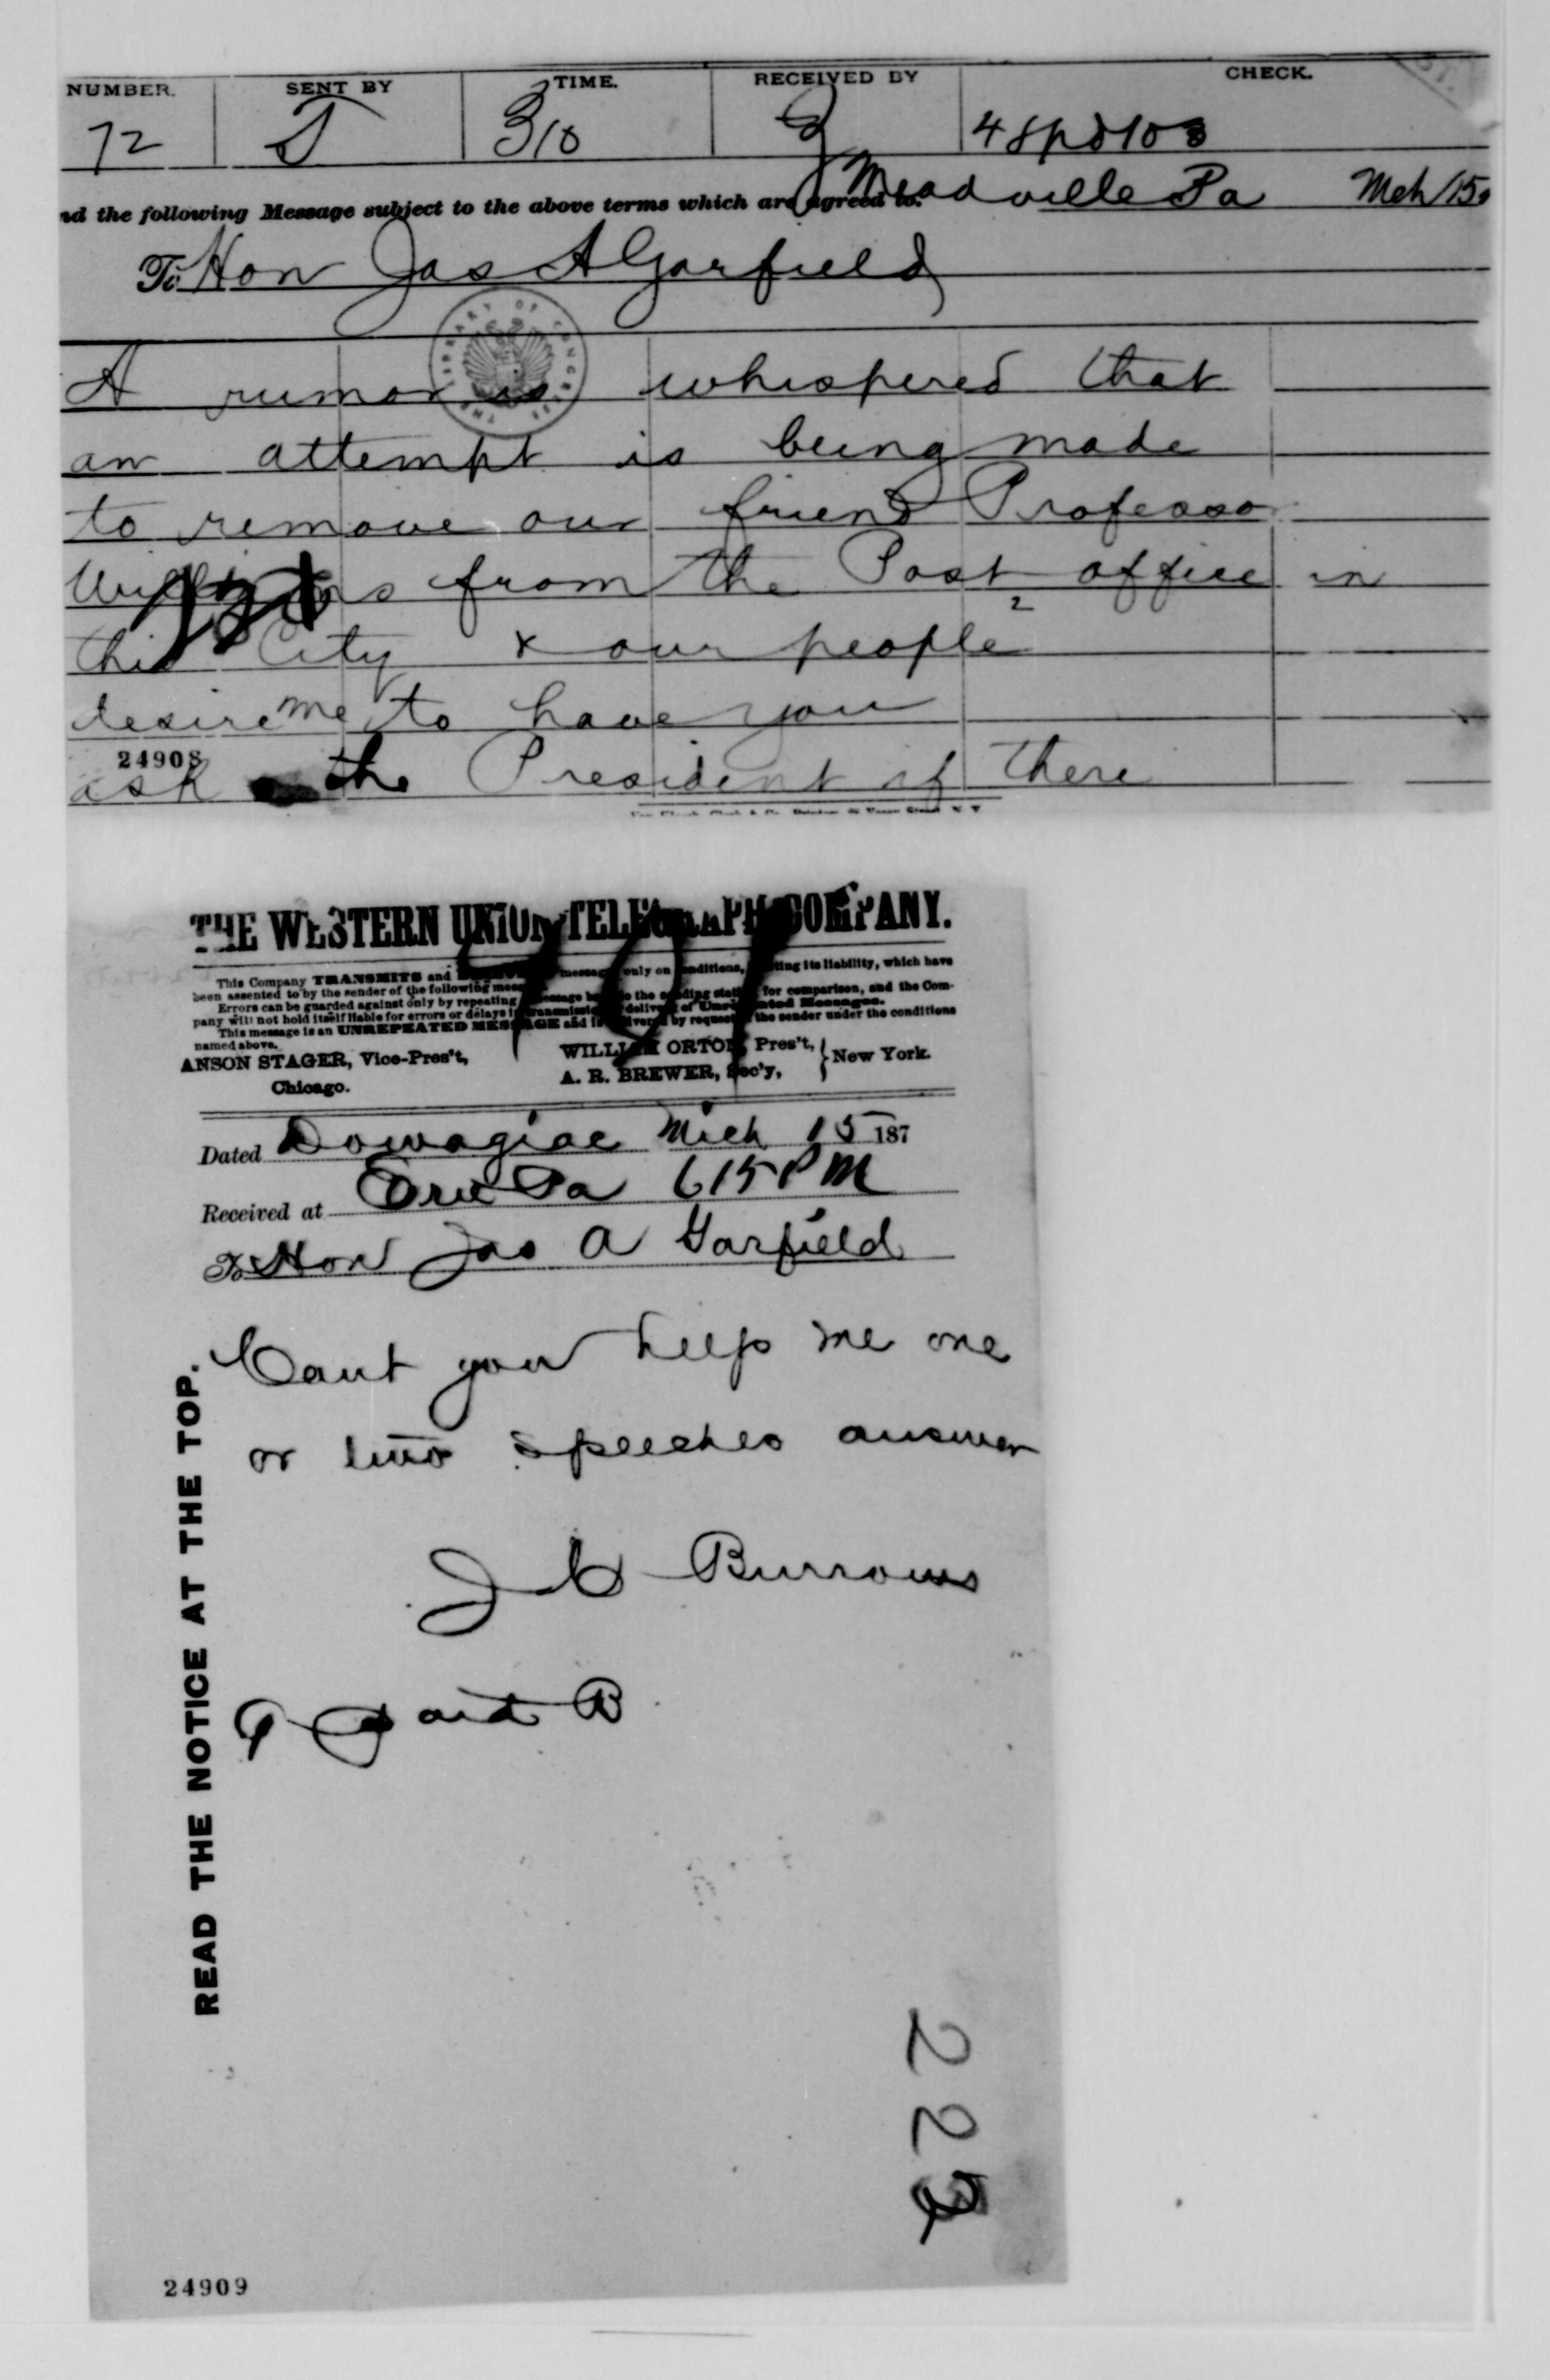 NUMBER. SENT BY TIME. RECEIVED BY CHECK.
72 310 48pd103
Meadville Pa Mch 15
nd the following Message subject to the above terms which are agreed to.
To Hon Jas A Garfield
THE LIBRARY OF CONGRESS
A rumor is whispered that
an attempt is being made
to remove our friend Professor
from the Post office in
2
this City & our people
desire me to have you
24908
ask the President if there
THE WESTERN UNION TELEGRAPH COMPANY.
This Company TRANSMITS and messages only on conditions, limiting its liability, which have
been assented to by the sender of the following message.
Errors can be guarded against only by repeating a message back to the sending station for comparison, and the Com-
pany will not hold itself liable for errors or delays in transmission or delivery of Unrepeated Messages.
This message is an UNREPEATED MESSAGE and is delivered by request of the sender under the conditions
named above.
ANSON STAGER, Vice-Pres't, Chicago.
WILLIAM ORTON, Pres't,
A. R. BREWER, Sec'y,
New York.
Dated Dowagiac Mich 15 187
Received at Erie Pa 615 PM
To Hon Jas A Garfield
Cant you help me one
or two speeches answer
J C Burrows
9 paid B
READ THE NOTICE AT THE TOP.
222
24909